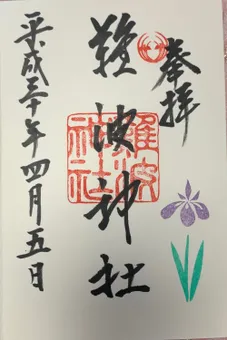 奉拝
難波神社
難波
神社
平成三十年四月五日